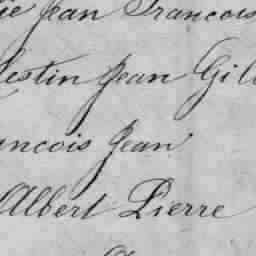 ie Jean Francois
lestin Jean Gil
ancois Jean
Albert Pierre